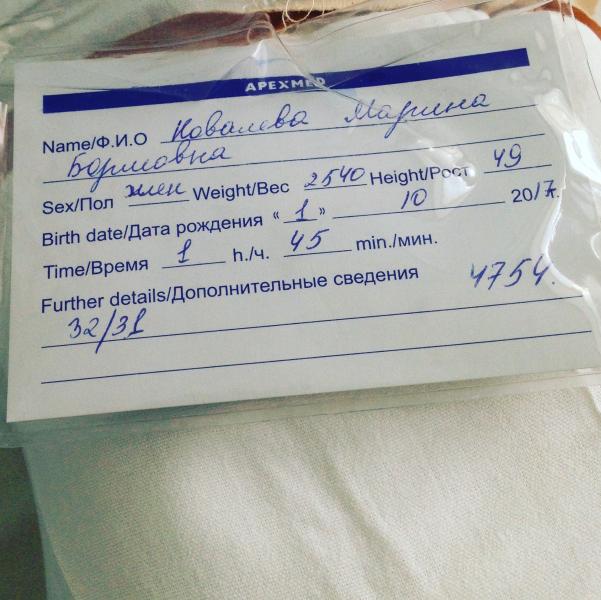 APEXMED
Name/Ф.И.О Ковалева Марина
Борисовна
Sex/Пол жен Weight/Вес 2540 Height/Рост 49
Birth date/Дата рождения «1» 10 2017.
Time/Время 1 h./ч. 45 min./мин.
Further details/Дополнительные сведения 4754.
32/31